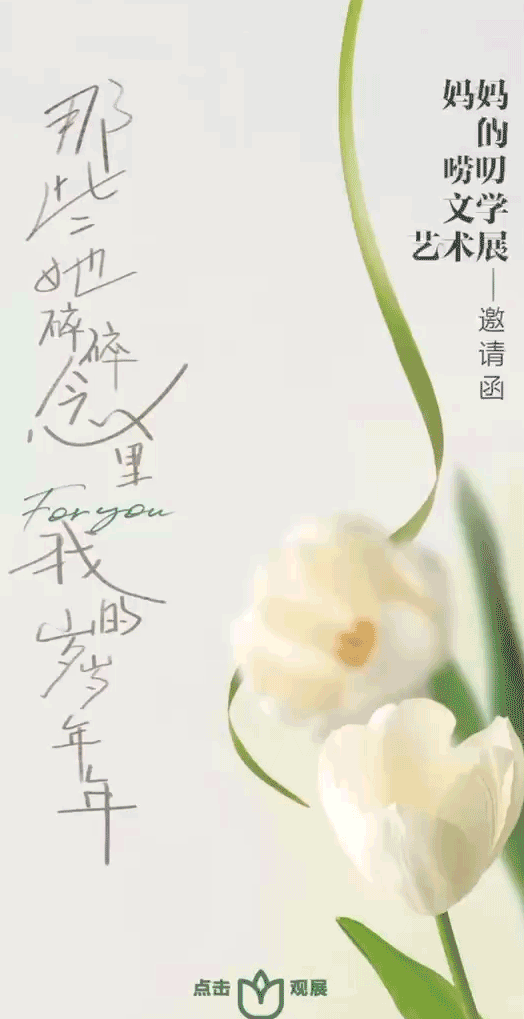 妈妈
的
唠叨
文学
艺术展
—邀请函
那些她碎碎念里
For you
我的岁岁年年
点击 观展